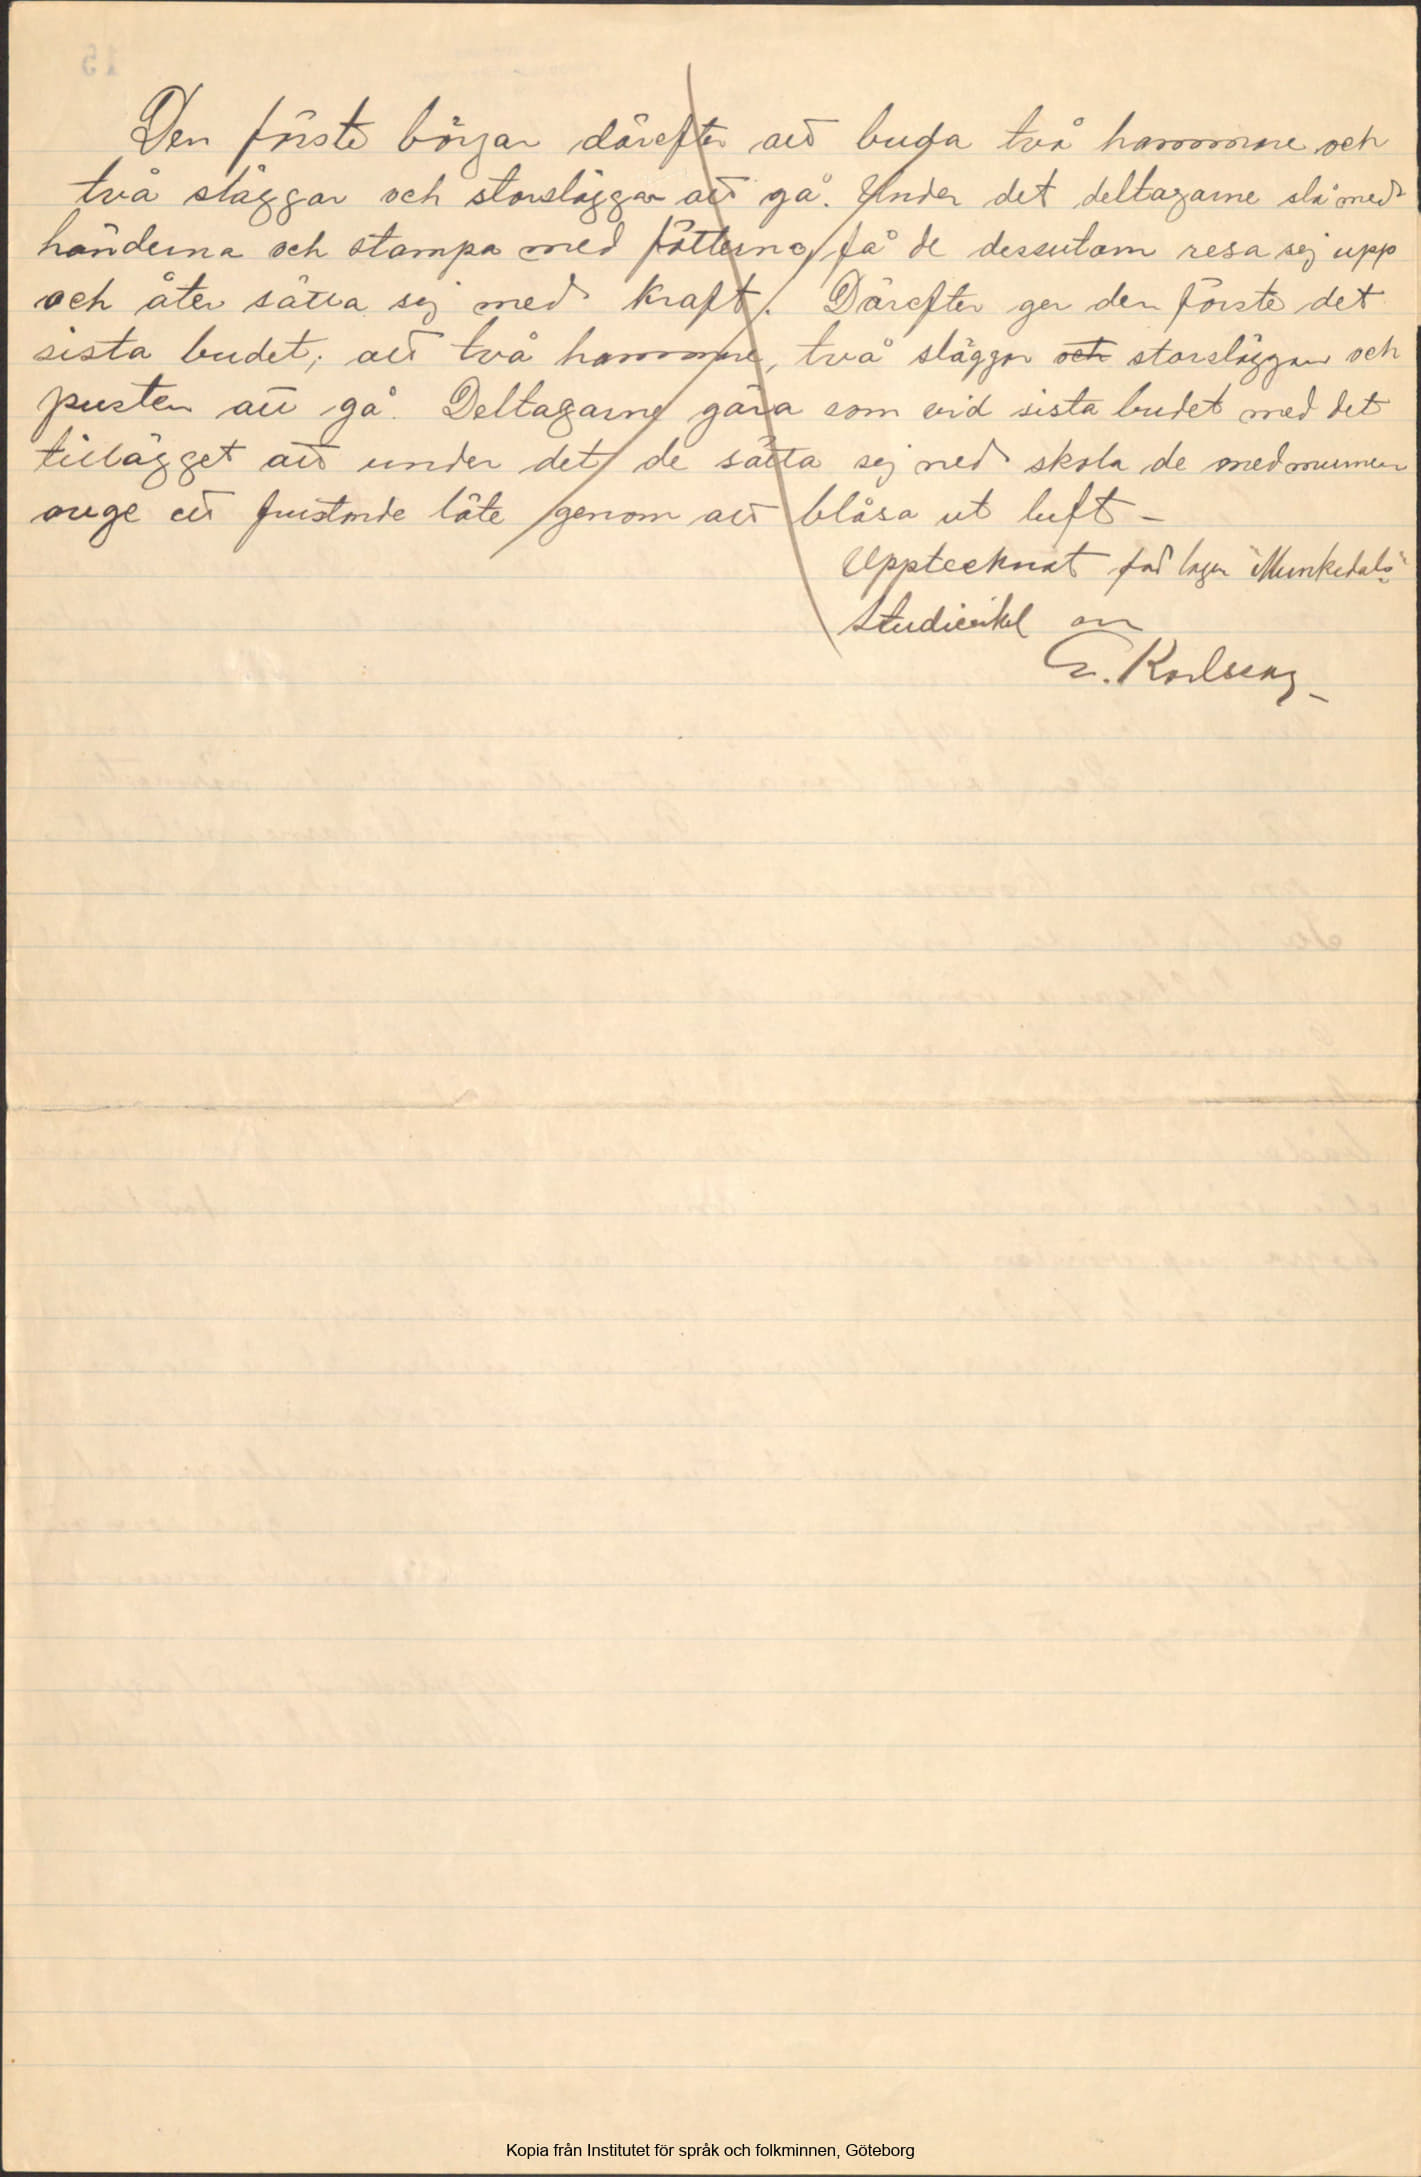 Den förste börjar därefter att buda två hammare och
två släggor och storsläggan att gå. Under det deltagarne slå med
händerna och stampa med fötterna, få de dessutom resa sej upp
och åter sätta sej med kraft. Därefter ger den förste det
sista budet, att två hammare, två släggor och storsläggan och
pusten att gå. Deltagarne göra som vid sista budet med det
tillägget att under det de sätta sej ned skola de med munnen
ange ett frustande läte genom att blåsa ut luft –
Upptecknat på lager "Munkedals"
studiecirkel av
E. Karlsson
Kopia från Institutet för språk och folkminnen, Göteborg